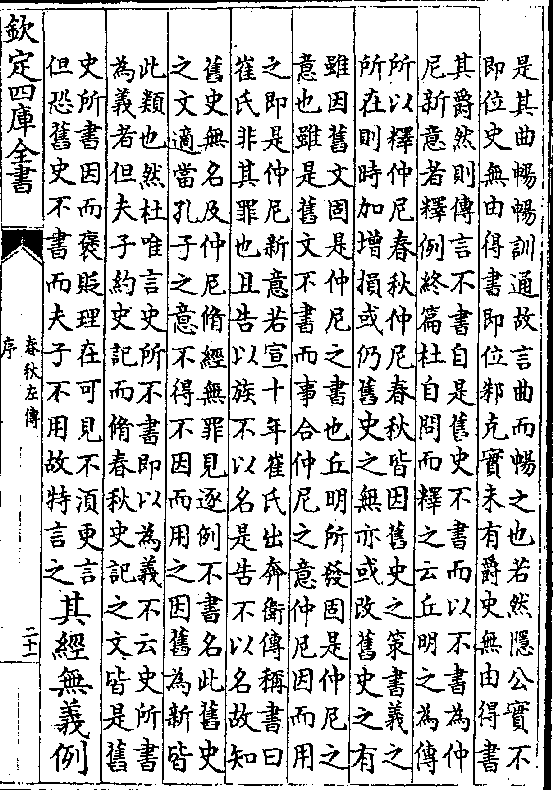 是其曲暢暢訓通故言曲而暢之也若然隱公實不
即位史無由得書即位邾克實未有爵史無由得書
其爵然則傳言不書自是舊史不書而以不書為仲
尼新意者釋例終篇杜自問而釋之云丘明之為傳
所以釋仲尼春秋仲尼春秋皆因舊史之策書義之
所在則時加增損或仍舊史之無亦或改舊史之有
雖因舊文固是仲尼之書也丘明所發固是仲尼之
意也雖是舊文不書而事合仲尼之意仲尼因而用
之即是仲尼新意若宣十年崔氏出奔衛傳稱書曰
崔氏非其罪也且告以族不以名是告不以名故知
舊史無名及仲尼脩經無罪見逐例不書名此舊史
之文適當孔子之意不得不因而用之因舊為新皆
此類也然杜唯言史所不書即以為義不云史所書
為義者但夫子約史記而脩春秋史記之文皆是舊
史所書因而褒貶理在可見不須更言
但恐舊史不書而夫子不用故特言之
其經無義例
欽定四庫全書
春秋左傳
序
二十一